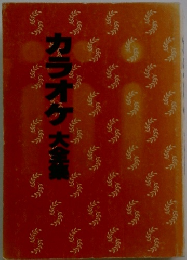 カラオケ大全集